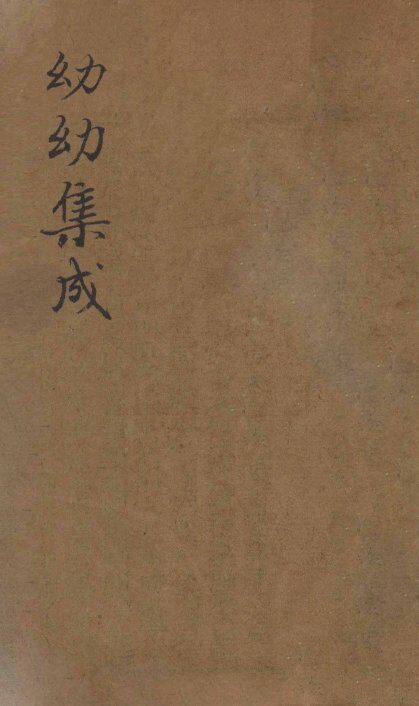 幼幼集成